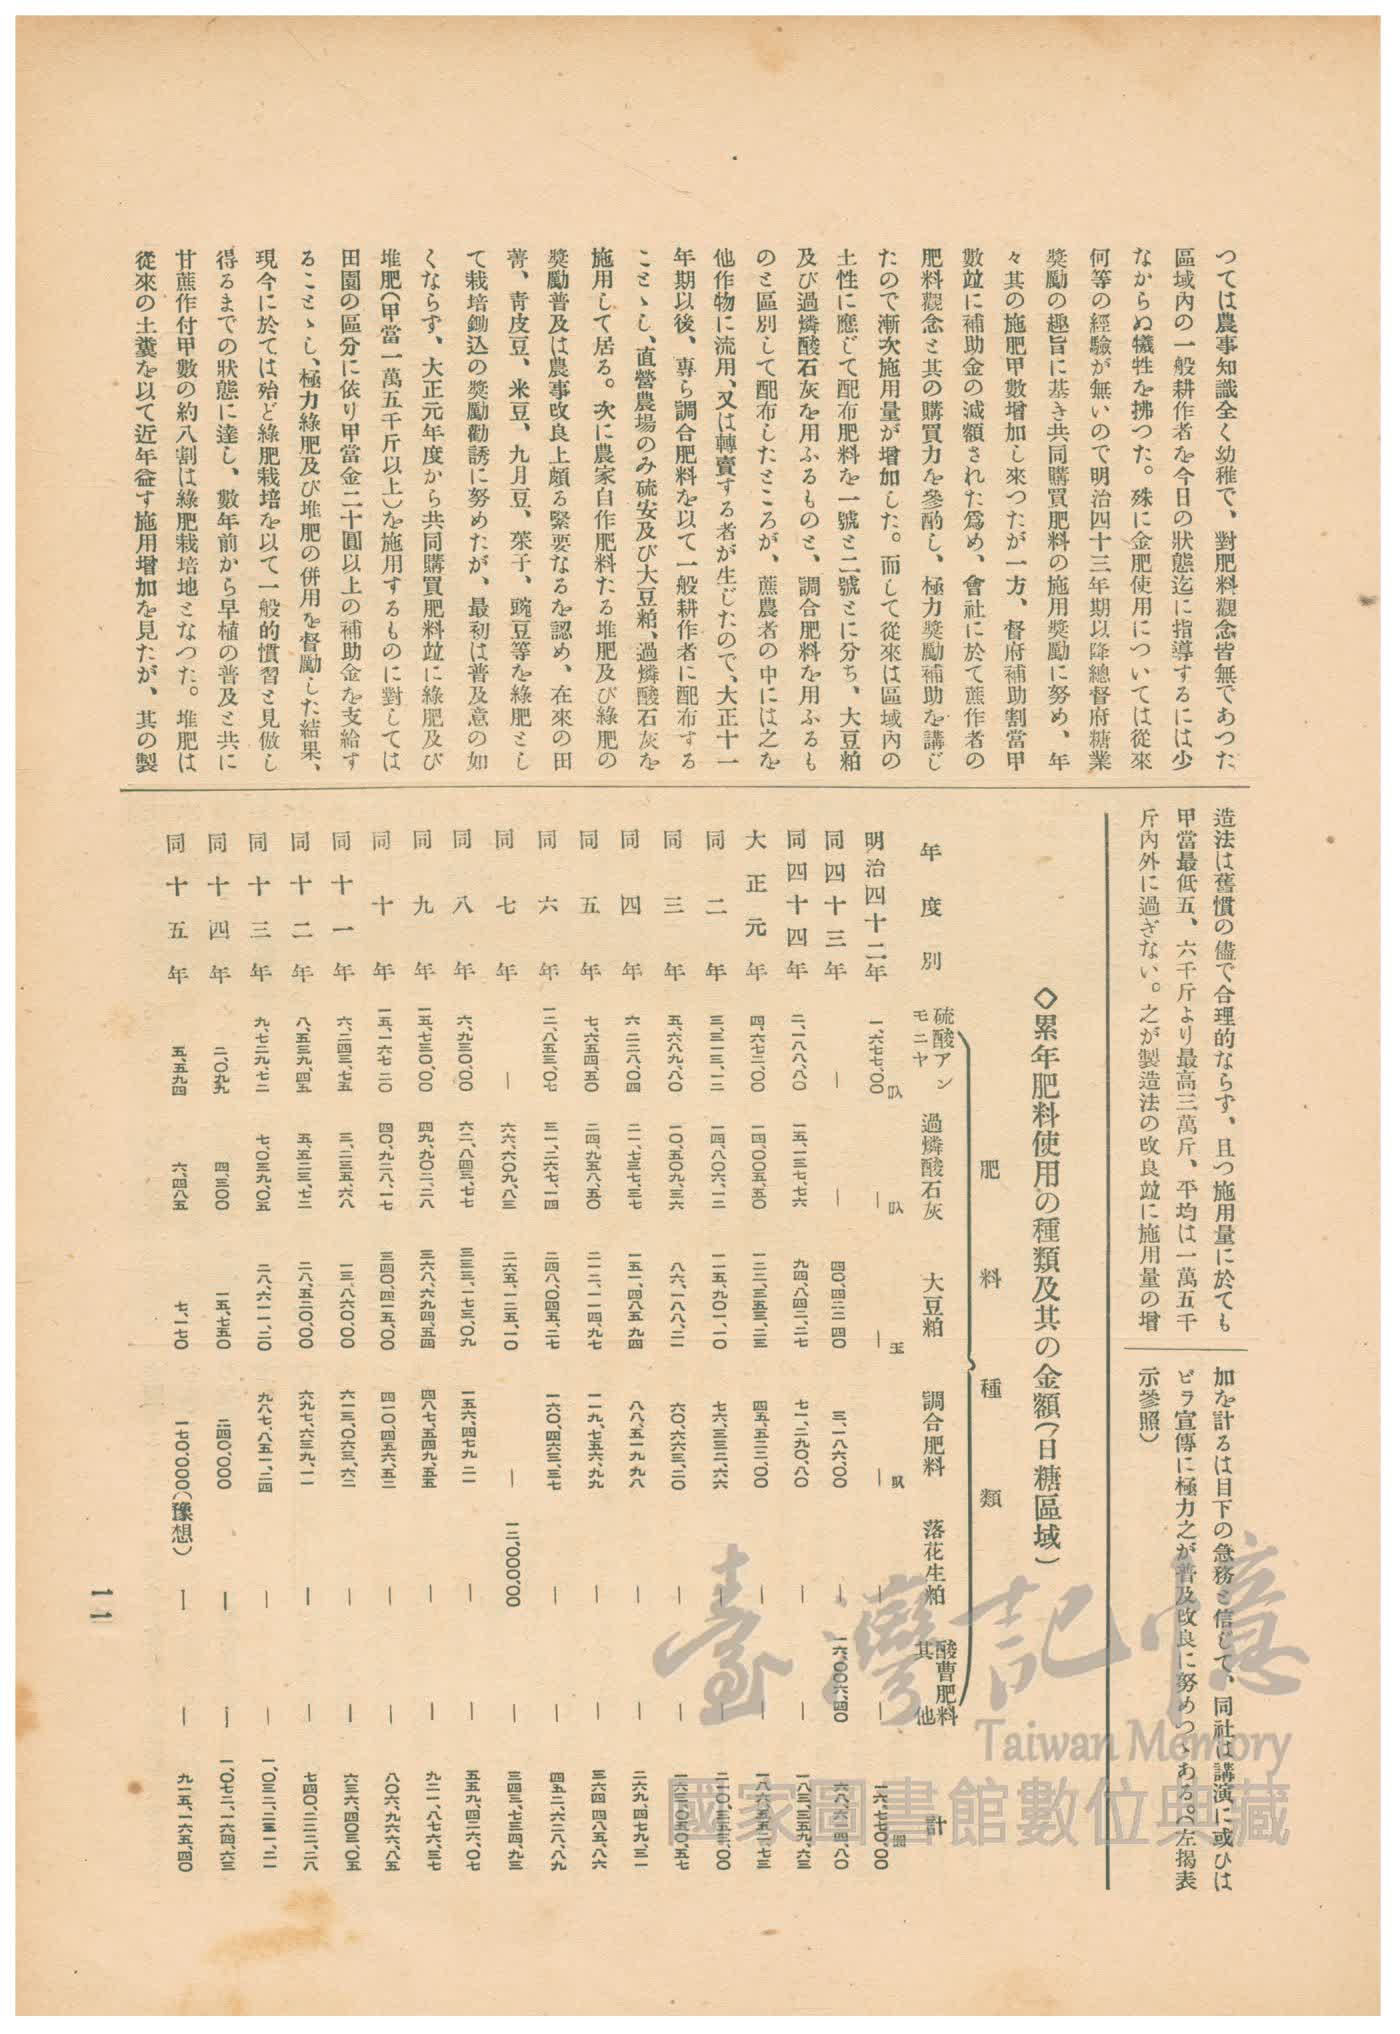 つては農事知識全く幼稚で、對肥料觀念皆無であつた
區域內の一般耕作者を今日の狀態迄に指導するには少
なからぬ犧牲を拂つた。殊に金肥使用については從來
何等の經驗が無いので明治四十三年期以降總督府糖業
奬勵の趣旨に基き共同購買肥料の施用奬勵に努め、年
々其の施肥甲數增加し來つたが一方、督府補助割當甲
數竝に補助金の減額された爲め、會社に於て蔗作者の
肥料觀念と其の購買力を參酌し、極力奬勵補助を講じ
たので漸次施用量が增加した。而して從來は區域內の
土性に應じて配布肥料を一號と二號とに分ち、大豆粕
及び過燐酸石灰を用ふるものと、調合肥料を用ふるも
のと區別して配布したところが、蔗農者の中には之を
他作物に流用、又は轉賣する者が生じたので、大正十一
年期以後、專ら調合肥料を以て一般耕作者に配布する
ことゝし、直營農場のみ硫安及び大豆粕、過燐酸石灰を
施用して居る。次に農家自作肥料たる堆肥及び綠肥の
奬勵普及は農事改良上頗る緊要なるを認め、在來の田
菁、靑皮豆、米豆、九月豆、菜子、豌豆等を綠肥とし
て栽培鋤込の奬勵勸誘に努めたが、最初は普及意の如
くならず、大正元年度から共同購買肥料竝に綠肥及び
堆肥(甲當一萬五千斤以上)を施用するものに對しては
田園の區分に依り甲當金二十圓以上の補助金を支給す
ることゝし、極力綠肥及び堆肥の併用を督勵した結果、
現今に於ては殆ど綠肥栽培を以て一般的慣習と見倣し
得るまでの狀態に達し、數年前から早植の普及と共に
甘蔗作付甲數の約八割は綠肥栽培地となつた。堆肥は
從來の土糞を以て近年益す施用增加を見たが、其の製
造法は舊慣の儘で合理的ならず、且つ施用量に於ても
甲當最低五、六千斤より最高三萬斤、平均は一萬五千
斤內外に過ぎない。之が製造法の改良竝に施用量の增
加を計るは目下の急務と信じて、同社は講演に或ひは
ビラ宣傳に極力之が普及改良に努めつゝある。(左揭表
示參照)
◇累年肥料使用の種類及其の金額(日糖區域)
肥料種類
年度別 硫酸アンモニヤ 過燐酸石灰 大豆粕 調合肥料 落花生粕 酸曹肥料其他 計
叺 叺 玉 叺 圓
明治四十二年 一、六七七、〇〇 — — — — — 一六、七七〇、〇〇
同四十三年 — — 四〇、四二二、四〇 三、一八六、〇〇 — 一六、〇〇六、四〇 六八、六一四、八〇
同四十四年 二、一八八、八〇 一五、一三七、七六 九四、八四二、二七 七一、二九〇、八〇 — — 一八三、三五九、六三
大正元年 四、六七二、〇〇 一四、〇〇五、五〇 一二二、三五三、二三 四五、五二二、〇〇 — — 一八六、五五二、七三
同二年 三、三一三、一二 一四、八〇六、一二 一一五、九〇一、一〇 七六、三三二、六六 — — 二一〇、三五三、〇〇
同三年 五、六八九、八〇 一〇、五〇九、三六 八六、一八八、二一 六〇、六六三、二〇 — — 一六三、〇五〇、五七
同四年 六、二二八、〇四 二一、七三七、三七 一五一、四八五、九四 八八、五一九、九八 — — 二六九、四七九、三一
同五年 七、六五四、五〇 二四、九五八、五〇 二一二、一一四、九七 一一九、七五六、九九 — — 三六四、四八五、八六
同六年 一二、八五三、〇七 三一、二六七、一四 二四八、〇四五、二七 一六〇、四六三、三七 — — 四五二、六二八、八九
同七年 — 六六、六〇九、八三 二六五、一二五、一〇 — 一二、〇〇〇、〇〇 — 三四三、七三四、九三
同八年 六、九三〇、〇〇 六二、八四三、七七 三三三、一七三、〇九 一五六、四七九、二一 — — 五五九、四二六、〇七
同九年 一五、七三〇、〇〇 四九、九〇二、二八 三六八、六九四、五四 四八七、五四九、五五 — — 九二一、八七六、三七
同十年 一五、一六七、二〇 四〇、九二八、一七 三四〇、四一五、〇〇 四一〇、四五六、五二 — — 八〇六、九六六、八五
同十一年 六、二四三、七五 三、二三五、六八 一三、八六〇、〇〇 六一三、〇六三、六二 — — 六三六、四〇三、〇五
同十二年 八、五三九、四五 五、五二三、七二 二八、五二〇、〇〇 六九七、六三九、一一 — — 七四〇、二二二、二八
同十三年 九、七二九、七二 七、〇三九、〇五 二八、六一一、二〇 九八七、八五一、二四 — — 一、〇三二、二三一、二一
同十四年 二、〇九九 四、三〇〇 一五、七五〇 二四〇、〇〇〇 — — 一、〇七二、一六四、六三
同十五年 五、五九四 六、四八五 七、一七〇 一七〇、〇〇〇(豫想) — — 九一五、一六五、四〇
一一
臺灣記憶
Taiwan Memory
國家圖書館數位典藏